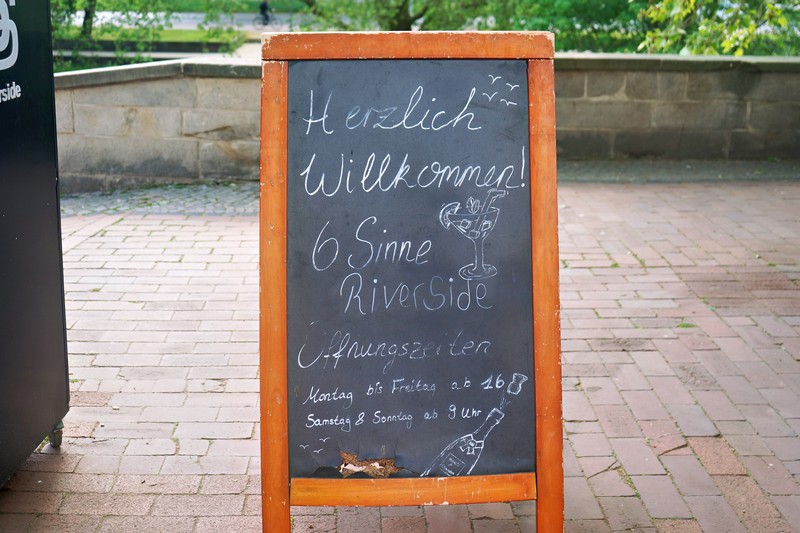 rside
Herzlich
Willkommen!
6 Sinne
RiverSide
Öffnungszeiten
Montag bis Freitag ab 16
Samstag & Sonntag ab 9 Uhr